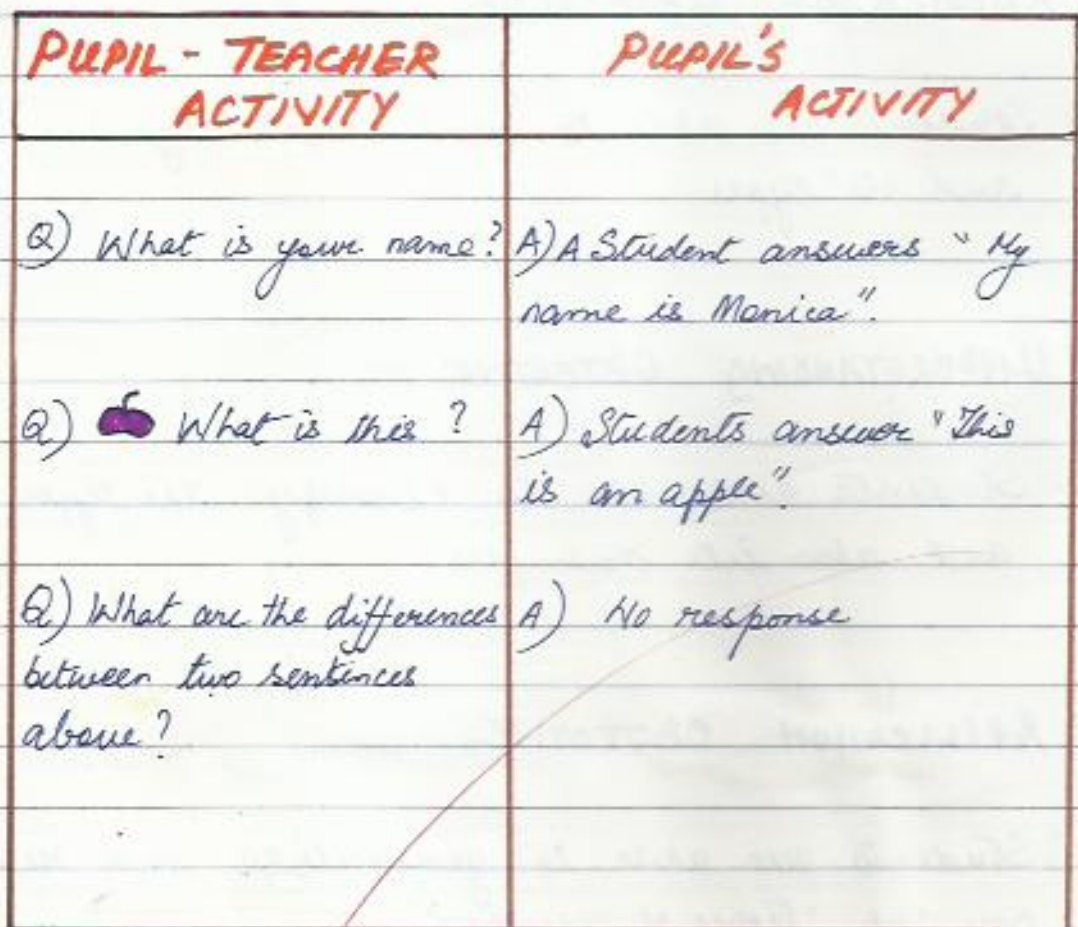 PUPIL - TEACHER
ACTIVITY
PUPIL'S
ACTIVITY
Q) What is your name?
A) A Student answers "My
name is Monica".
Q) What is this ?
A) Students answer "This
is an apple".
Q) What are the differences
between two sentences
above?
A) No response